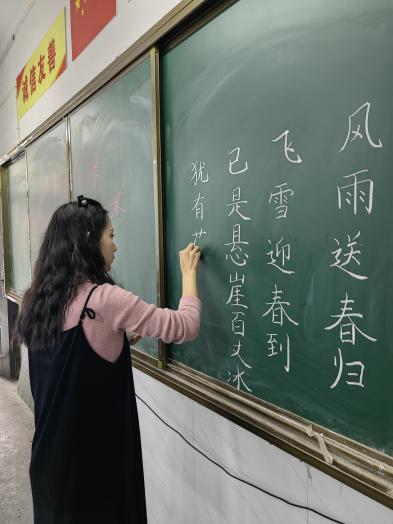 风雨送春归
飞雪迎春到
已是悬崖百丈冰
犹有
诚信友善